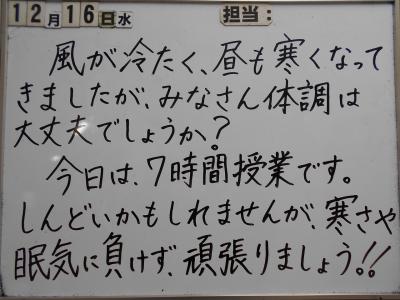 12月16日水 担当：
風が冷たく、昼も寒くなって
きましたが、みなさん体調は
大丈夫でしょうか？
今日は、7時間授業です。
しんどいかもしれませんが、寒さや
眠気に負けず、頑張りましょう!!